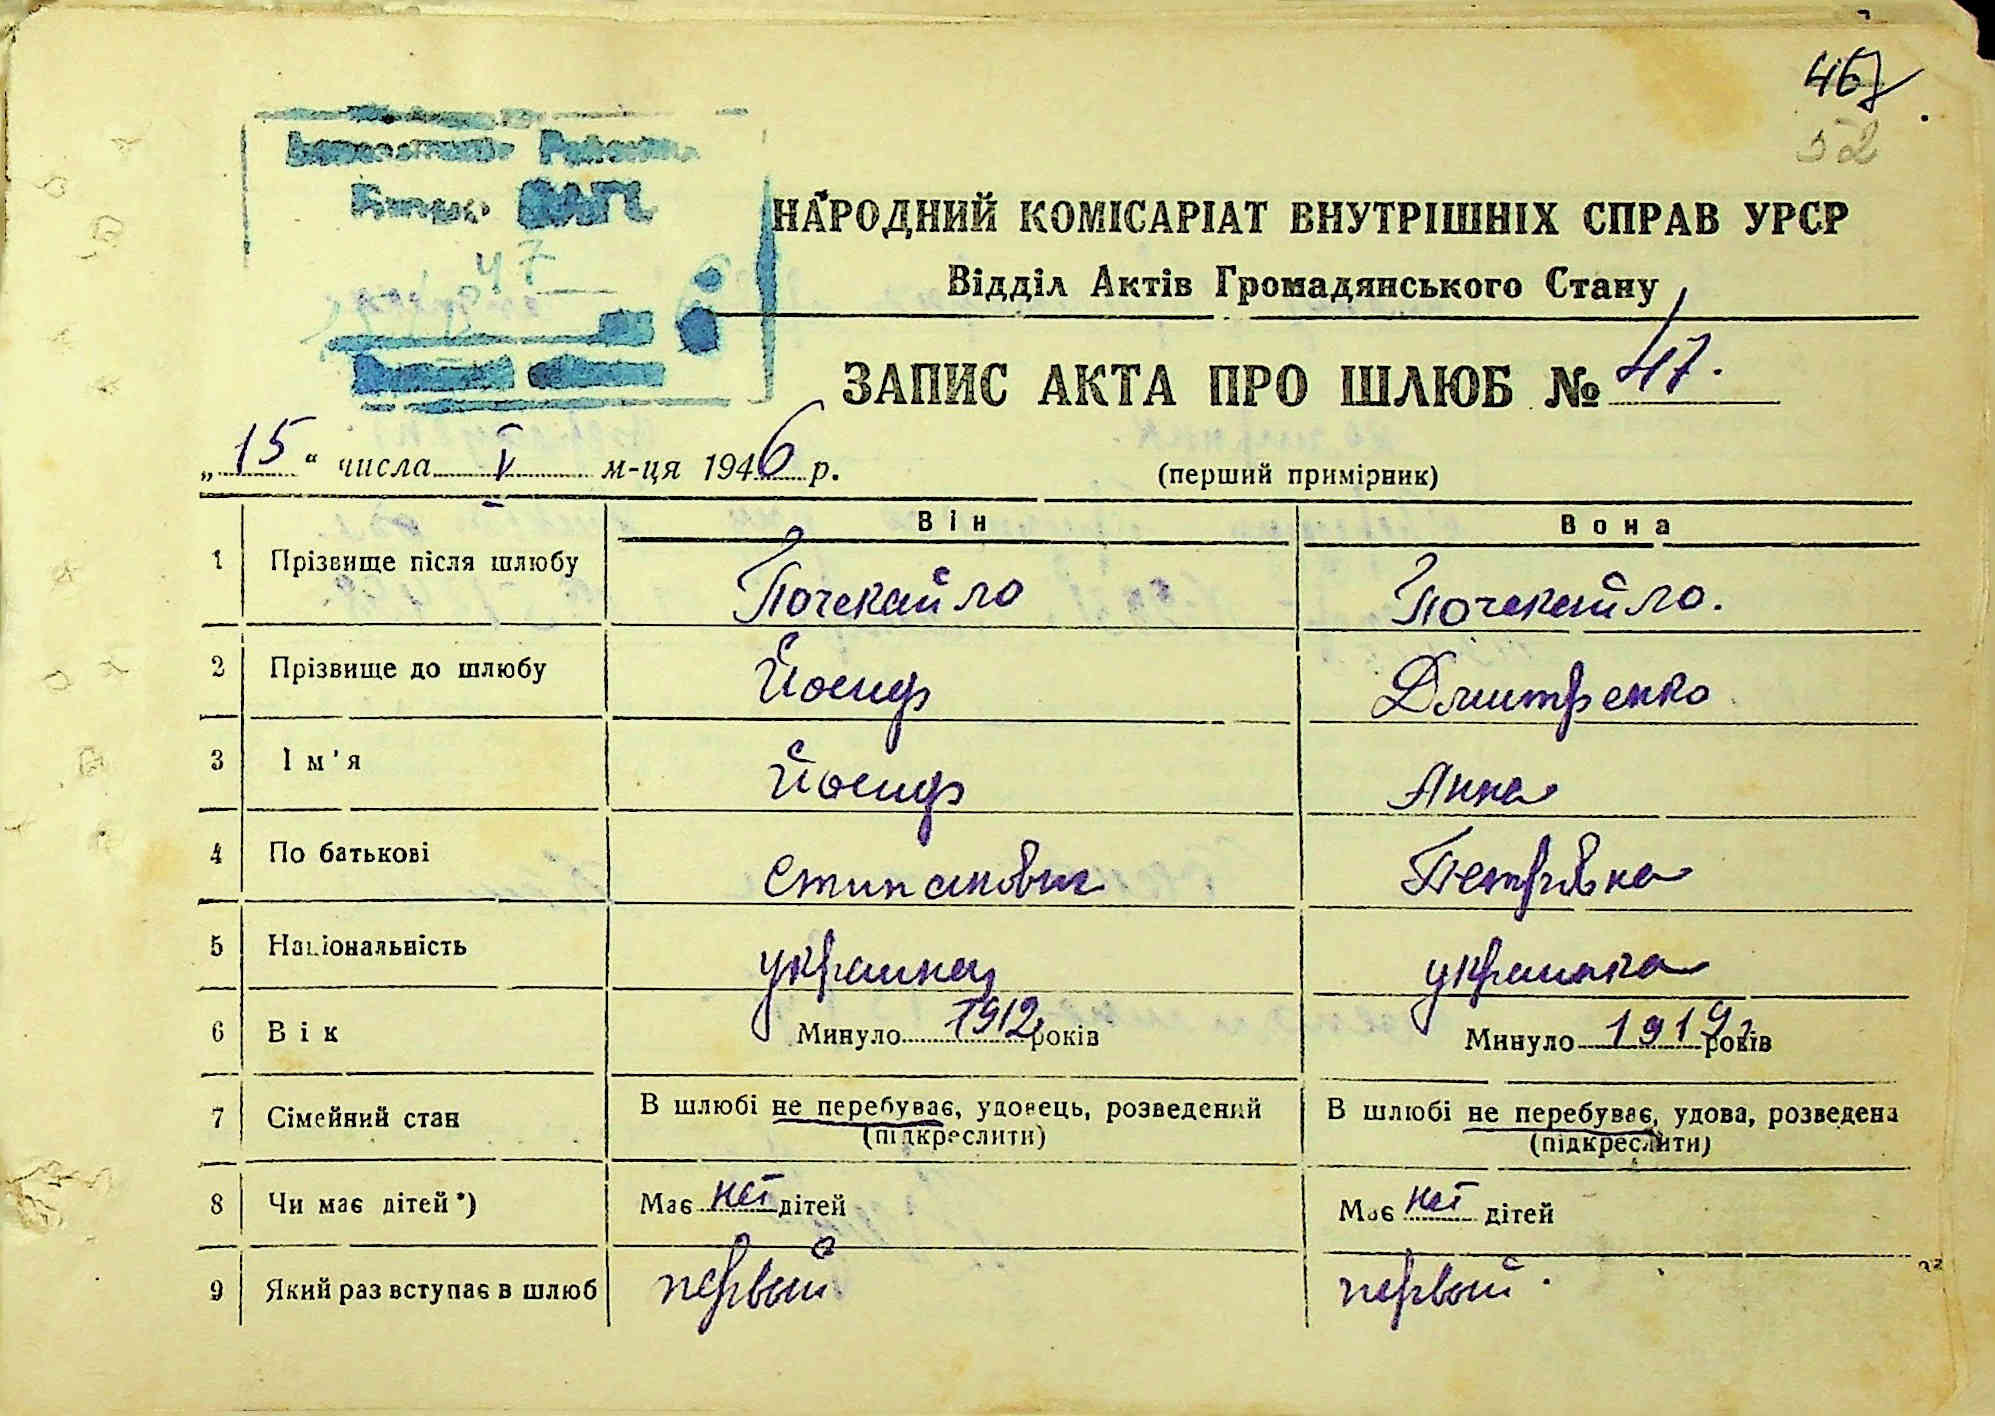 467
52
47
НАРОДНИЙ КОМІСАРІАТ ВНУТРІШНІХ СПРАВ УРСР
Відділ Актів Громадянського Стану
ЗАПИС АКТА ПРО ШЛЮБ № 47.
„15“ числа V м-ця 1946 р.
(перший примірник)
Він Вона
1 Прізвище після шлюбу Почекайло Почекайло.
2 Прізвище до шлюбу Йосиф Дмитренко
3 Ім'я Йосиф Анна
4 По батькові Стипанович Петрівна
5 Національність украинец украинка
6 Вік Минуло 1912 років Минуло 1919 років
7 Сімейний стан В шлюбі не перебуває, удовець, розведений В шлюбі не перебуває, удова, розведена
(підкреслити) (підкреслити)
8 Чи має дітей*) Має нет дітей Має нет дітей
9 Який раз вступає в шлюб первый первый.